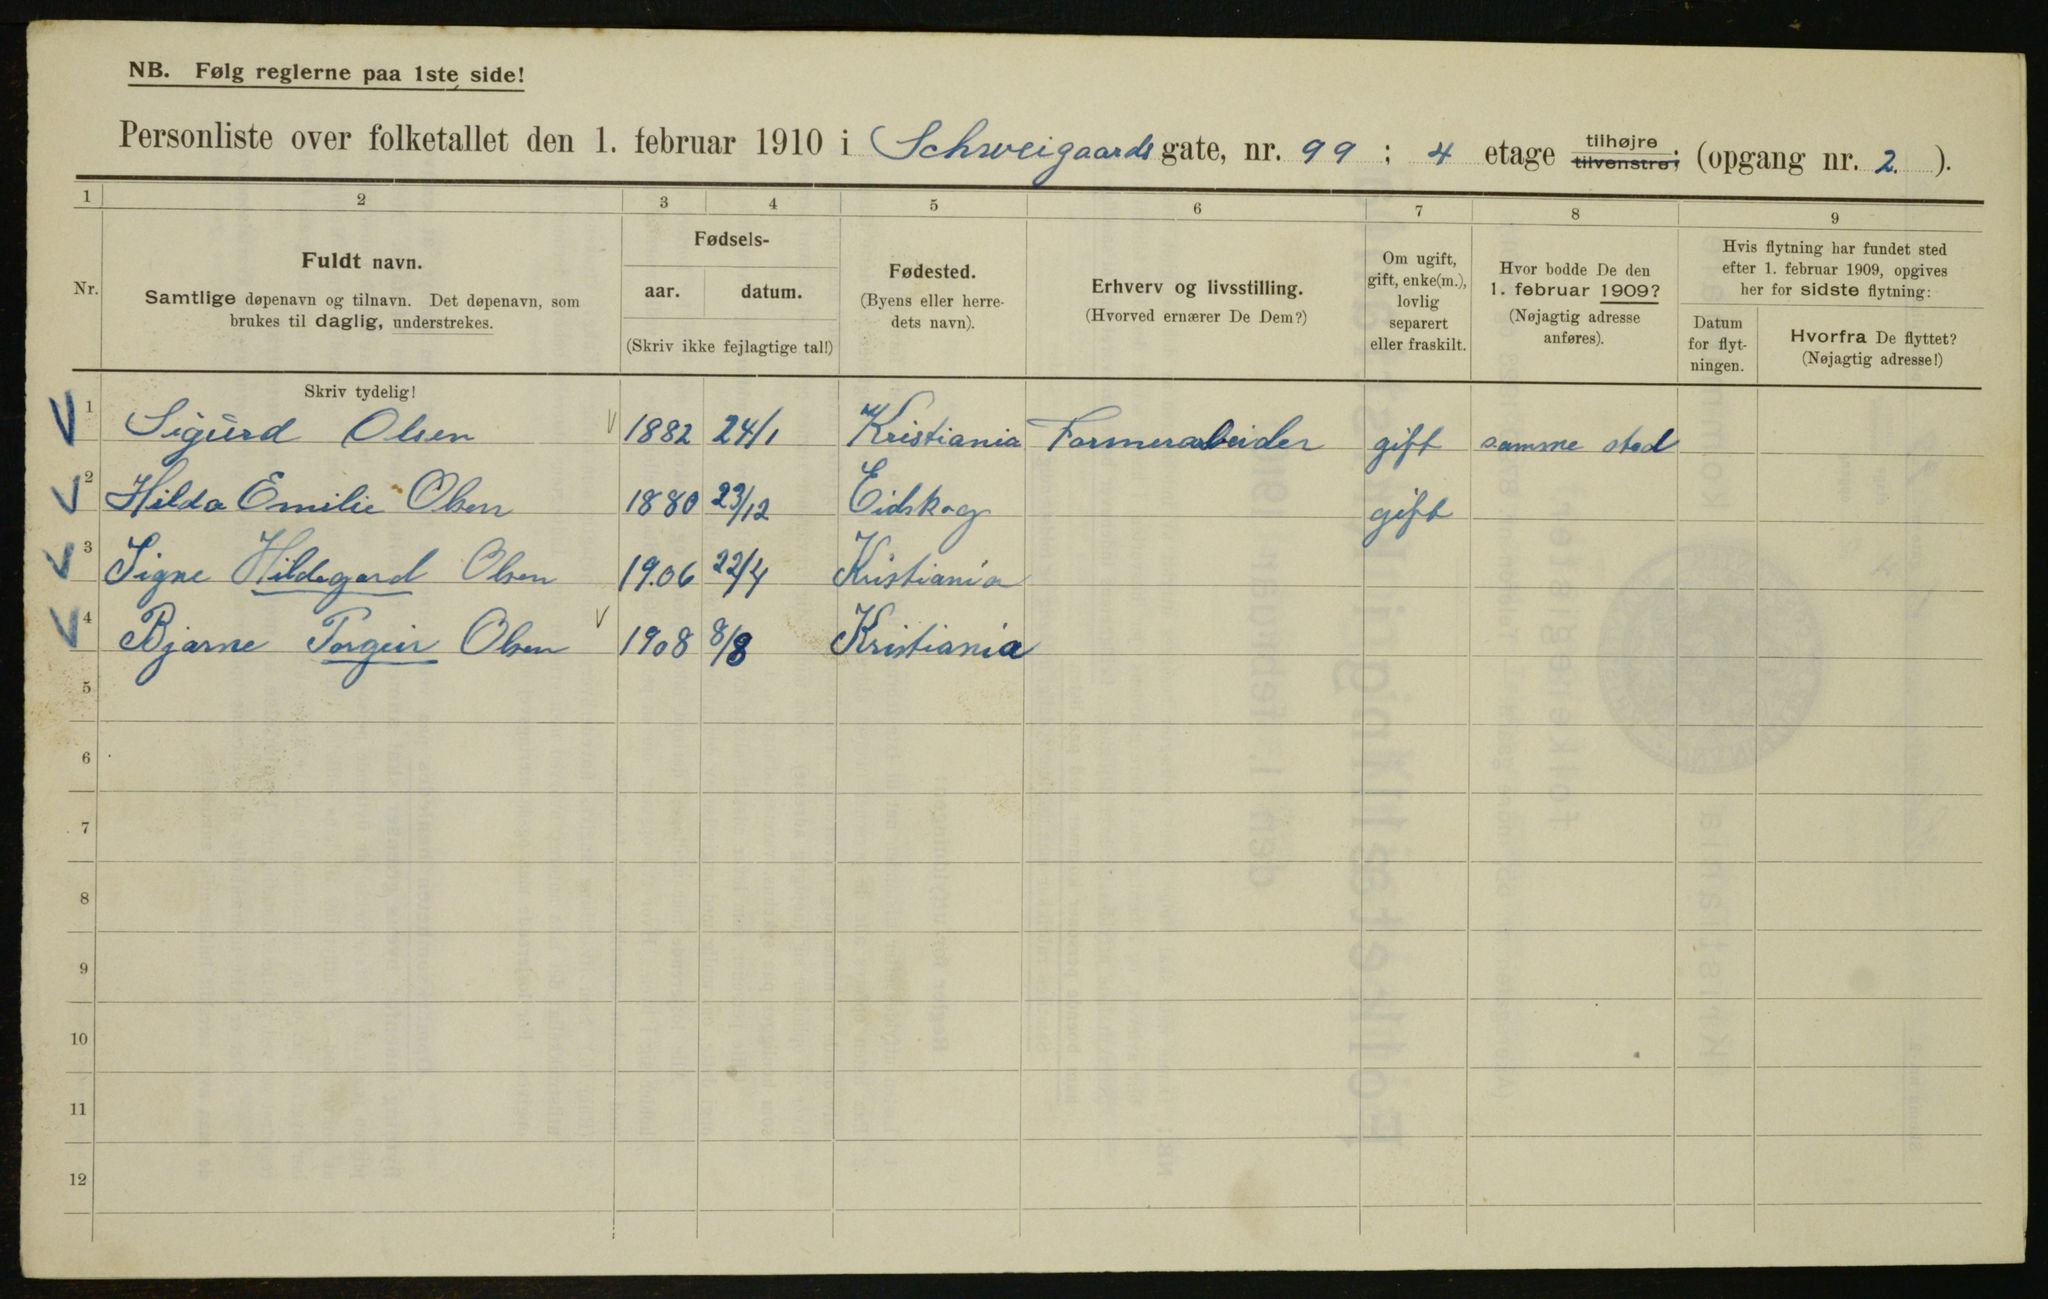 NB. Følg reglerne paa 1ste side!
Personliste over folketallet den 1. februar 1910 i Schweigaards gate, nr. 99 ; 4 etage tilhøjre tilvenstre; (opgang nr. 2. ).
1 2 3 4 5 6 7 8 9
Nr.
Fuldt navn.
Samtlige døpenavn og tilnavn. Det døpenavn, som
brukes til daglig, understrekes.
Fødsels-
aar. datum.
(Skriv ikke fejlagtige tal!)
Fødested.
(Byens eller herre-
dets navn).
Erhverv og livsstilling.
(Hvorved ernærer De Dem?)
Om ugift,
gift, enke(m.),
lovlig
separert
eller fraskilt.
Hvor bodde De den
1. februar 1909?
(Nøjagtig adresse
anføres).
Hvis flytning har fundet sted
efter 1. februar 1909, opgives
her for sidste flytning:
Datum
for flyt-
ningen.
Hvorfra De flyttet?
(Nøjagtig adresse!)
Skriv tydelig!
1 Sigurd Olsen 1882 24/1 Kristiania Formerarbeider gift samme sted
2 Hilda Emilie Olsen 1880 23/12 Eidskog gift
3 Signe Hildegard Olsen 1906 22/4 Kristiania
4 Bjarne Torgeir Olsen 1908 8/8 Kristiania
5
6
7
8
9
10
11
12